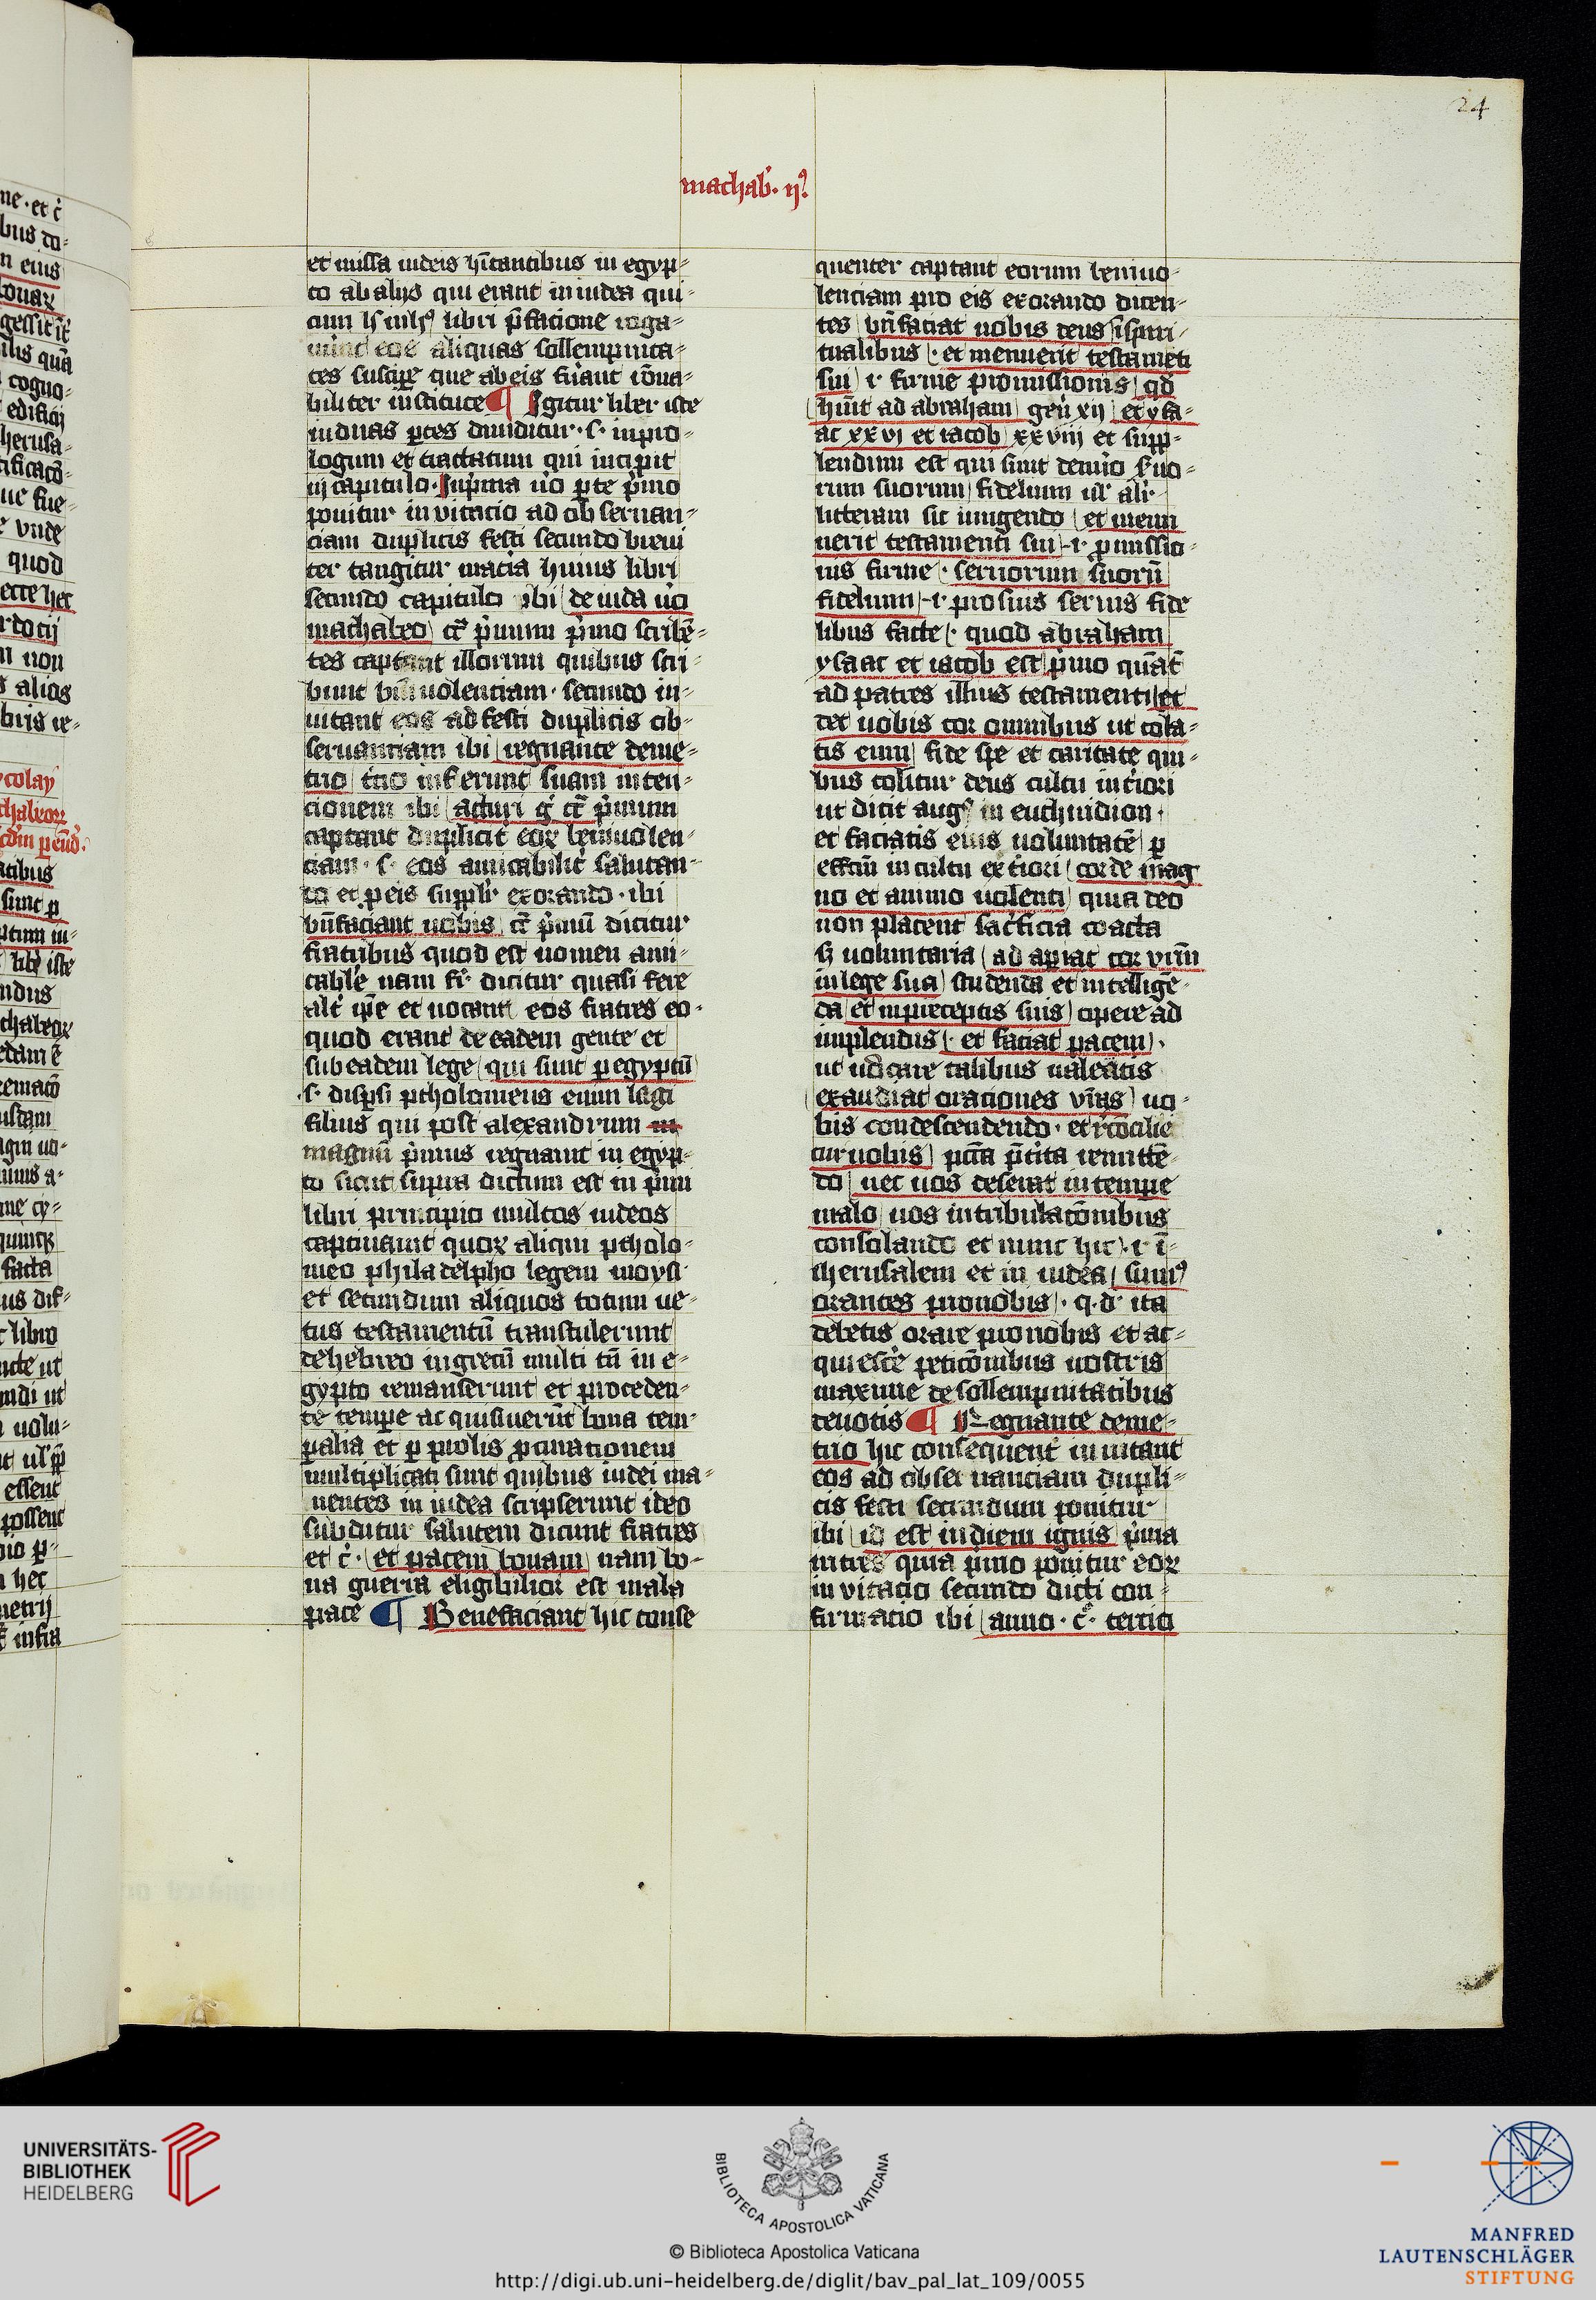 24
machab. ij9.
et missa iudeis hitantibus in egyp-
to ab alijs qui erant in iudea qui-
cum huius libri pfacione roga-
eos aliquas sollempnita-
tes suscipe que ab eis fuant rona-
biliter institute ¶ Igitur liber iste
in duas ptes diuiditur · s · in pro-
logum et tractatum qui incipit
iij capitulo. In pma uo pte pmo
ponitur inuitacio ad obseruan-
ciam duplicis festi secundo breui
ter tangitur matia huius libri
secundo capitulo ibi de iuda uo
machabeo cet pmum pmo scribe-
tes captant illorum quibus scri-
bunt beniuolenciam · secundo in-
uitant eos ad festi duplicis ob-
seruanciam ibi regnante deme-
trio tcio inferunt suam inten-
cionem ibi acturi g cet pmum
captant duplicit eor beniuolen-
ciam · s · eos amicabilit salutan-
do et p eis suppl exorando · ibi
bnfaciant uobis cet pmu dicitur
fratribus quod est nomen ami-
cabile nam fr dicitur quasi fere
alt ipe et uocant eos fratres eo-
quod erant de eadem gente et
sub eadem lege qui sunt p egyptu
· s · dispsi ptholomeus enim lagi
filius qui post alexandrum
magnu pmus regnauit in egyp-
to sicut supra dictum est in pmi
libri principio multos iudeos
captiuauit quor aliqui ptholo-
meo philadelpho legem moysi
et secundum aliquos totum ue-
tus testamentu transtulerunt
de hebreo in grecu multi tn in e-
gypto remanserunt et proceden-
te tempe acquisiuerut bona tem-
palia et p prolis pcreacionem
multiplicati sunt quibus iudei ma-
nentes in iudea scripserunt ideo
subditur salutem dicunt fratres
et c · et pacem bonam nam bo-
na guerra eligibilior est mala
pace ¶ Benefaciant hic conse
quenter captant eorum beniuo-
lenciam pro eis exorando dicen-
tes bnfaciat uobis deus i spiri-
tualibus · et meminerit testameti
sui · i · firme promissionis qd
huit ad abraham gen xij et ysa-
ac xxvj et iacob xxviij et supp-
lendum est qui sunt de nuo suo-
rum suorum fidelium ul ali
litteram sic iungendo et memi
nerit testamenti sui · i · pmissio-
nis firme · seruorum suoru
fidelium · i · pro suis seruis fide
libus facte · quod abraham
ysaac et iacob est pmo quat
ad patres illius testamenti et
det uobis cor omnibus ut cola-
tis eum fide spe et caritate qui-
bus colitur deus cultu intiori
ut dicit aug9 in enchiridion ·
et faciatis eius uoluntate p
effcm in cultu extiori corde mag
no et animo uolenti quia deo
non placent sacficia coacta
s uoluntaria adapiat cor vrm
in lege sua studenda et intellige-
da et in preceptis suis opere ad
implendis · et faciat pacem ·
ut uacare talibus ualeatis
exaudiat oraciones vras uo-
bis condescendendo · et rconcilie
tur uobis pcta ptita remitte-
do nec uos deserat in tempe
malo uos in tribulaconibus
consolando et nunc hic · i · i-
iherusalem et in iudea sum9
orantes pro uobis · q · d ita
debetis orare pro nobis et ac-
quiesce peticonibus nostris
maxime de sollempnitatibus
deuotis ¶ Regnante deme-
trio hic consequent inuitant
eos ad obseruanciam dupli-
cis festi secundum ponitur
ibi id est in diem ignis pma
in tres quia pmo ponitur eor
inuitacio secundo dicti con-
firmacio ibi anno · c · tercio
UNIVERSITÄTS-
BIBLIOTHEK
HEIDELBERG
BIBLIOTECA APOSTOLICA VATICANA
© Biblioteca Apostolica Vaticana
http://digi.ub.uni-heidelberg.de/diglit/bav_pal_lat_109/0055
MANFRED
LAUTENSCHLÄGER
STIFTUNG